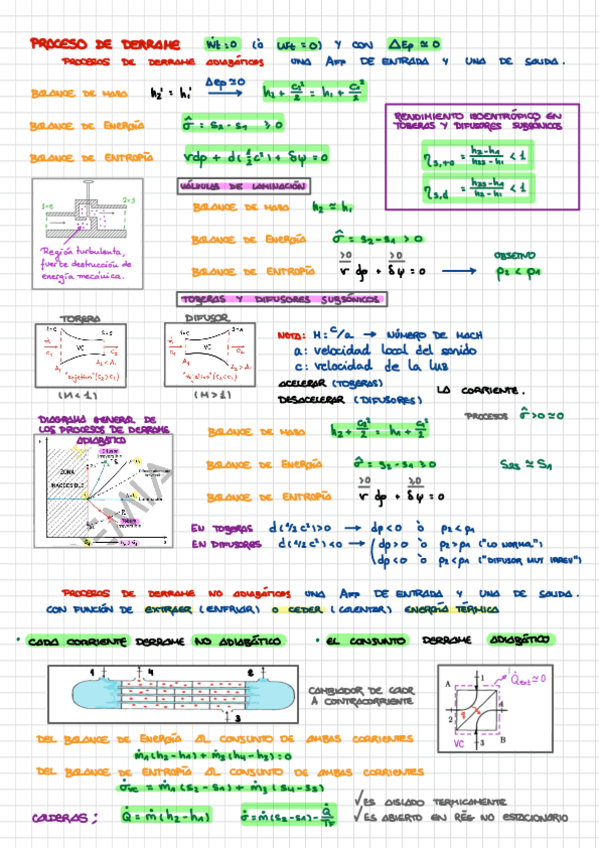 PROCESO DE DERRAME Ẇt=0 (ò wt=0) Y CON ΔEp≃0
PROCESOS DE DERRAME ADIABÁTICOS UNA Aff DE ENTRADA Y UNA DE SALIDA.
BALANCE DE MASA h2' = h1' ΔEp≃0 → h2 + c2²/2 = h1 + c1²/2
BALANCE DE ENERGÍA σ̂ = s2-s1 ≥0
BALANCE DE ENTROPÍA vdp + d(½c²) + δψ = 0
RENDIMIENTO ISOENTRÓPICO EN
TOBERAS Y DIFUSORES SUBSÓNICOS
<1
<1
VÁLVULAS DE LAMINACIÓN
BALANCE DE MASA h2 ≃ h1
BALANCE DE ENERGÍA σ̂ = s2-s1 > 0
BALANCE DE ENTROPÍA v dp + δψ = 0 → p2 < p1
>0 >0
OBJETIVO
Región turbulenta,
fuerte destrucción de
energía mecánica.
TOBERAS Y DIFUSORES SUBSÓNICOS
TOBERA DIFUSOR
VC VC
(M<1) (M>1)
NOTA: M: c/a → NÚMERO DE MACH
a: velocidad local del sonido
c: velocidad de la luz
ACELERAR (TOBERAS)
DESACELERAR (DIFUSORES) LA CORRIENTE.
PROCESOS σ̂>0≃0
DIAGRAMA GENERAL DE
LOS PROCESOS DE DERRAME
ADIABÁTICO
ZONA
INACCESIBLE
EMIA
BALANCE DE MASA h2 + c2²/2 = h1 + c1²/2
BALANCE DE ENERGÍA σ̂ = s2-s1 ≥0 s2s ≃ s1
≥0 ≥0
BALANCE DE ENTROPÍA v dp + δψ = 0
EN TOBERAS d(½c²)>0 → dp<0 ò p2<p1
EN DIFUSORES d(½c²)<0 → dp>0 ò p2>p1 ("LO NORMAL")
dp<0 ò p2<p1 ("DIFUSOR MUY IRREV")
PROCESOS DE DERRAME NO ADIABÁTICOS UNA Aff DE ENTRADA Y UNA DE SALIDA.
CON FUNCIÓN DE EXTRAER (ENFRIAR) O CEDER (CALENTAR) ENERGÍA TÉRMICA
· CADA CORRIENTE DERRAME NO ADIABÁTICO · EL CONJUNTO DERRAME ADIABÁTICO
1 4 2
3
CAMBIADOR DE CALOR
A CONTRACORRIENTE
Q̇ext≃0
A 1
2 4
VC 3 B
DEL BALANCE DE ENERGÍA AL CONJUNTO DE AMBAS CORRIENTES
ṁ1(h2-h1) + ṁ3(h4-h3) = 0
DEL BALANCE DE ENTROPÍA AL CONJUNTO DE AMBAS CORRIENTES
σ̇vc = ṁ1(s2-s1) + ṁ3(s4-s3)
CALDERAS: Q̇ = ṁ(h2-h1) σ̇ = ṁ(s2-s1) -
√ ES AISLADO TÉRMICAMENTE
√ ES ABIERTO EN RÉG NO ESTACIONARIO